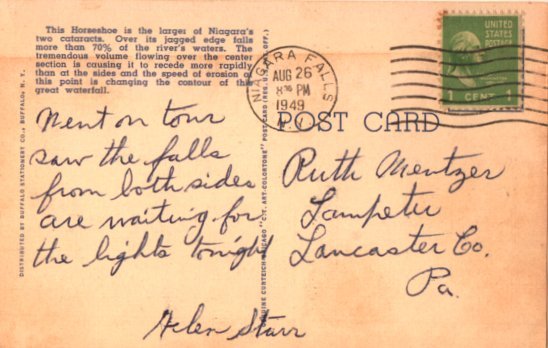 This Horseshoe is the larger of Niagara's
two cataracts. Over its jagged edge falls
more than 70% of the river's waters. The
tremendous volume flowing over the center
section is causing it to recede more rapidly
than at the sides and the speed of erosion at
this point is changing the contour of this
great waterfall.
Went on tour
saw the falls
from both sides
are waiting for
the lights tonight
Helen Starr
DISTRIBUTED BY BUFFALO STATIONERY CO., BUFFALO, N. Y.
GENUINE CURTEICH-CHICAGO "C.T. ART-COLORTONE" POST CARD (REG. U.S. PAT. OFF.)
NIAGARA FALLS
AUG 26
PM
1949
N.Y.
UNITED
STATES
POSTAGE
1 CENT 1
POST CARD
Ruth Mentzer
Lampeter
Lancaster Co.
Pa.